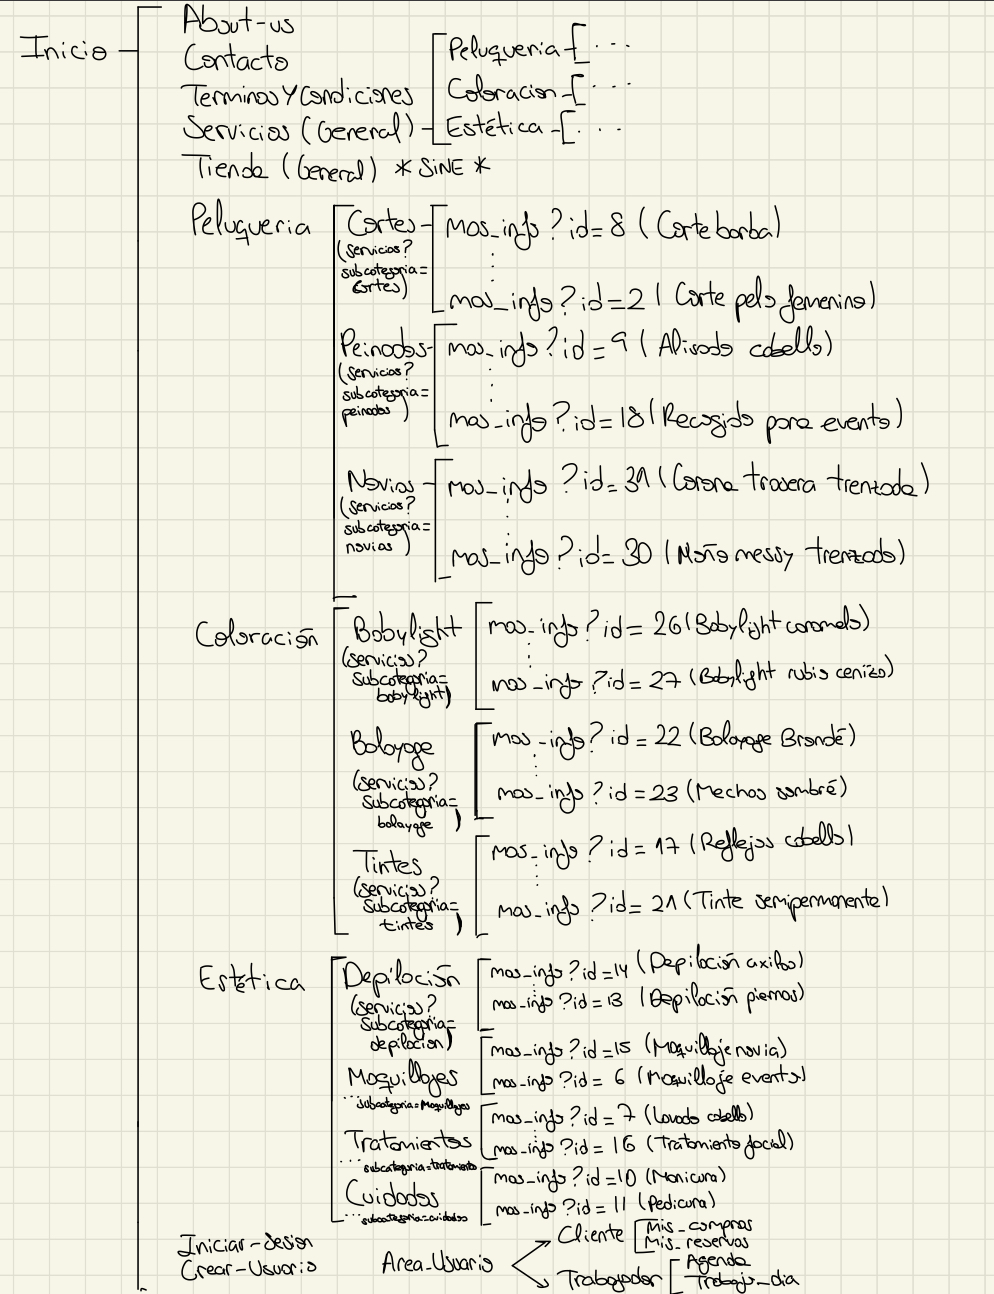 Inicio
About-us
Contacto
Terminos Y Condiciones
Servicios (General)
Peluqueria [ . . .
Coloracion [ . . .
Estética [ . . .
Tienda (General) * SINE *
Peluqueria
Cortes
(servicios?
subcategoria=
Cortes)
mas_info?id=8 (Corte barba)
mas_info?id=2 (Corte pelo femenino)
Peinados
(servicios?
subcategoria=
peinados)
mas_info?id=9 (Alisado cabello)
mas_info?id=18 (Recogido para evento)
Novias
(servicios?
subcategoria=
novias)
mas_info?id=31 (Corona trasera trenzada)
mas_info?id=30 (Moño messy trenzado)
Coloración
Babylight
(servicios?
subcategoria=
babylight)
mas_info?id=26 (Babylight caramelo)
mas_info?id=27 (Babylight rubio cenizo)
Balayage
(servicios?
subcategoria=
balayage)
mas_info?id=22 (Balayage Brondé)
mas_info?id=23 (Mechas sombré)
Tintes
(servicios?
subcategoria=
tintes)
mas_info?id=17 (Reflejos cabello)
mas_info?id=21 (Tinte semipermanente)
Estética
Depilación
(servicios?
subcategoria=
depilacion)
mas_info?id=14 (Depilación axilas)
mas_info?id=13 (Depilación piernas)
Maquillajes
... subcategoria=Maquillajes
mas_info?id=15 (Maquillaje novia)
mas_info?id=6 (Maquillaje evento)
Tratamientos
... subcategoria=tratamiento
mas_info?id=7 (Lavado cabello)
mas_info?id=16 (Tratamiento facial)
Cuidados
... subcategoria=cuidados
mas_info?id=10 (Manicura)
mas_info?id=11 (Pedicura)
Iniciar-sesion
Crear-Usuario
Area_Usuario
Cliente
Mis_compras
Mis_reservas
Trabajador
Agenda
Trabajo_dia